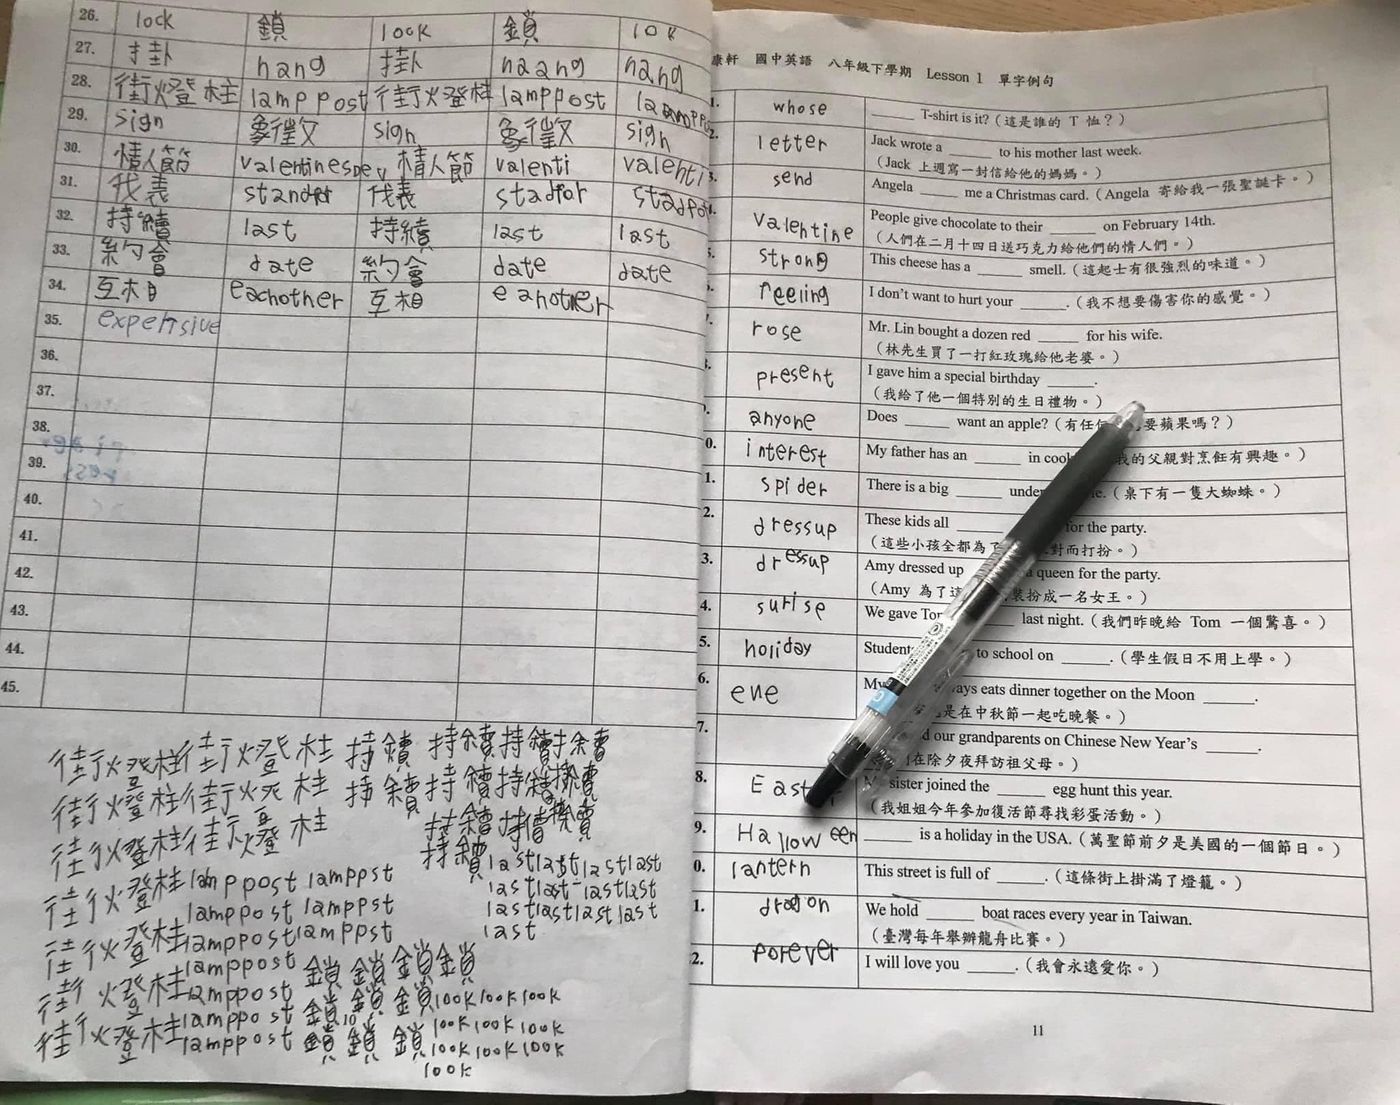 26. lock 鎖 lock 鎖 lok
27. 掛 hang 掛 haang hang
28. 街燈柱 lamp post 街燈柱 lamppost
29. sign 象徵 sign 象徵 sign
30. 情人節 valentinesdey 情人節 valenti valenti
31. 代表 standfor 代表 stadfor stadfor
32. 持續 last 持續 last last
33. 約會 date 約會 date date
34. 互相 eachother 互相 eanother
35. expensive
36.
37.
38.
39.
40.
41.
42.
43.
44.
45.
街燈柱街燈柱 持續 持續持續持續
街燈柱街燈柱 持續持續持續持續
街燈柱街燈柱 持續持續持續
街燈柱lamppost lamppst 持續lastlastlastlast
lamppost lamppst lastlastlastlast
街燈柱lamppostlamppst lastlastlastlast
lamppost last
街燈柱lamppost 鎖鎖鎖鎖
lamppost 鎖鎖鎖looklookloook
街燈柱lamppost 鎖鎖鎖look look look
look look look
look
康軒 國中英語 八年級下學期 Lesson 1 單字例句
1. whose ______ T-shirt is it?（這是誰的 T 恤？）
2. letter Jack wrote a ______ to his mother last week.
（Jack 上週寫一封信給他的媽媽。）
3. send Angela ______ me a Christmas card.（Angela 寄給我一張聖誕卡。）
4. valentine People give chocolate to their ______ on February 14th.
（人們在二月十四日送巧克力給他們的情人們。）
5. strong This cheese has a ______ smell.（這起士有很強烈的味道。）
feeling I don't want to hurt your ______.（我不想要傷害你的感覺。）
7. rose Mr. Lin bought a dozen red ______ for his wife.
（林先生買了一打紅玫瑰給他老婆。）
present I gave him a special birthday ______.
（我給了他一個特別的生日禮物。）
anyone Does ______ want an apple?（有任何 要蘋果嗎？）
0. interest My father has an ______ in cook 我的父親對烹飪有興趣。）
1. spider There is a big ______ under e.（桌下有一隻大蜘蛛。）
2. dressup These kids all ______ for the party.
（這些小孩全都為了 對而打扮。）
3. dressup Amy dressed up a queen for the party.
（Amy 為了這 裝扮成一名女王。）
4. surise We gave Tom ______ last night.（我們昨晚給 Tom 一個驚喜。）
5. holiday Students to school on ______.（學生假日不用上學。）
6. eve My ways eats dinner together on the Moon ______.
是在中秋節一起吃晚餐。）
7. d our grandparents on Chinese New Year's ______.
們在除夕夜拜訪祖父母。）
8. East My sister joined the ______ egg hunt this year.
（我姐姐今年參加復活節尋找彩蛋活動。）
9. Halloween ______ is a holiday in the USA.（萬聖節前夕是美國的一個節日。）
0. lantern This street is full of ______.（這條街上掛滿了燈籠。）
1. dragon We hold ______ boat races every year in Taiwan.
（臺灣每年舉辦龍舟比賽。）
2. forever I will love you ______.（我會永遠愛你。）
11